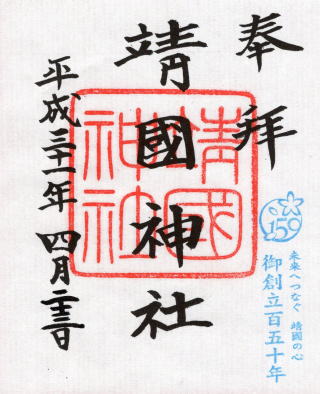 奉拝
未来へつなぐ 靖國の心
御創立百五十年
靖國神社
靖國
神社
平成三十一年 四月二十三日